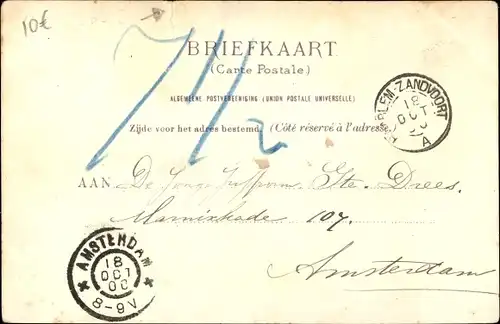 10€
7 1/2
BRIEFKAART
(Carte Postale)
ALGEMEENE POSTVEREENIGING (UNION POSTALE UNIVERSELLE)
Zijde voor het adres bestemd. (Côté réservé à l'adresse.)
HAARLEM-ZANDVOORT
18
OCT
A
AAN De Jonge Juffrouw Gte. Drees.
Marnixkade 107.
Amsterdam
AMSTERDAM
18
OCT
00
8-9V